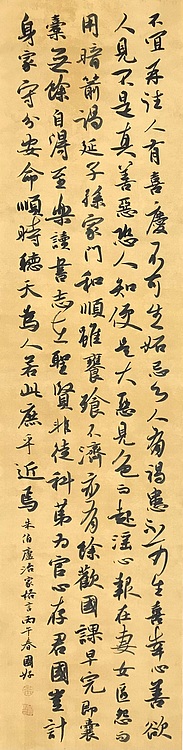 不宜再往人有喜慶不可生妬忌心人有禍患不可生喜幸心善欲
人見不是真善惡恐人知便是大惡見色而起淫心報在妻女匿怨而
用暗箭禍延子孫家門和順雖饔飧不濟亦有餘歡國課早完即囊
橐無餘自得至樂讀書志在聖賢非徒科第為官心存君國豈計
身家守分安命順時聽天為人若此庶乎近焉 朱伯廬治家格言丙午春國好